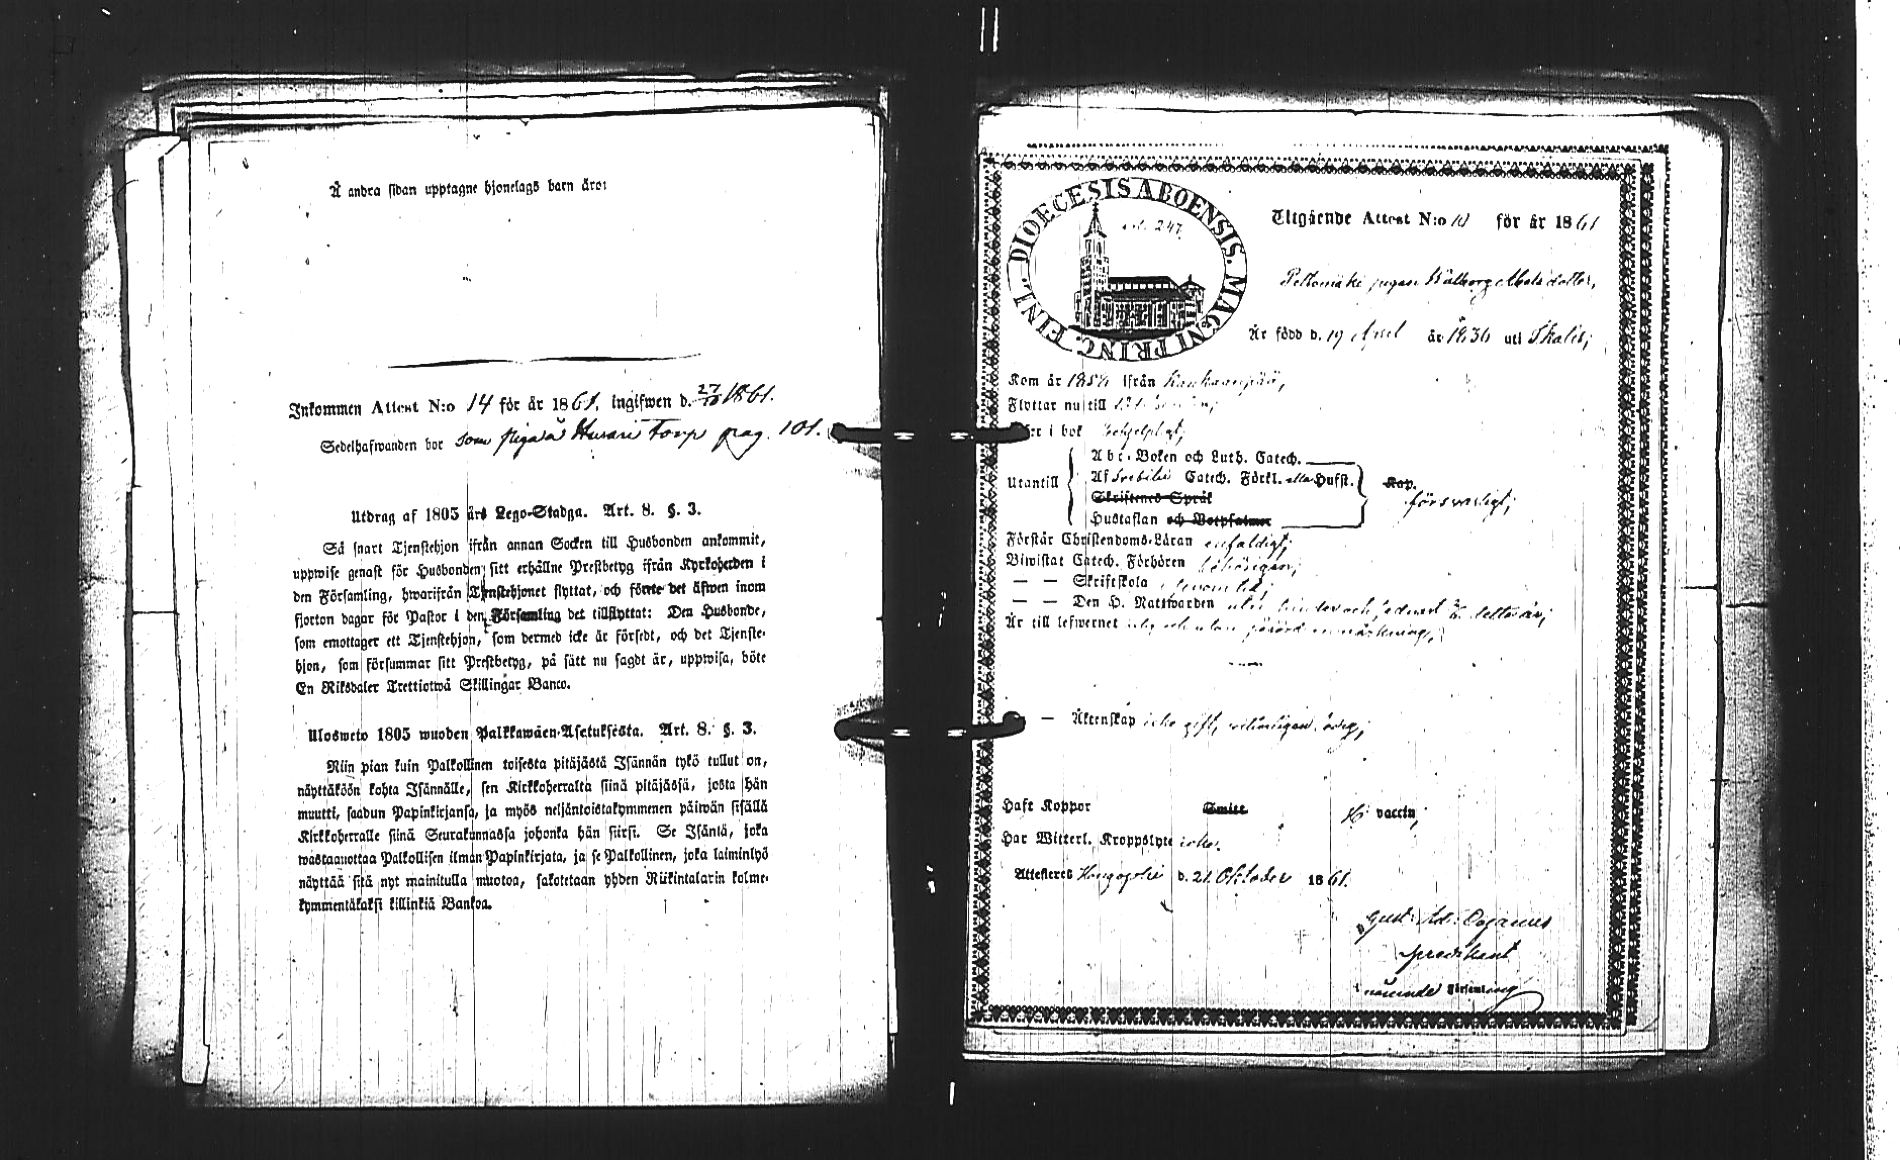 Å andra sidan upptagne hjonelags barn äro:
Inkommen Attest N:o 14 för år 1861. ingifwen d. 27/10 1861.
Sedelhafwanden bor som piga å Husari Torp pag. 101.
Utdrag af 1805 års Lego-Stadga. Art. 8. §. 3.
Så snart Tjenstehjon ifrån annan Socken till Husbonden ankommit,
uppwise genast för Husbonden sitt erhållne Prestbetyg ifrån Kyrkoherden i
den Församling, hwarifrån Tjenstehjonet flyttat, och förete det äfwen inom
fjorton dagar för Pastor i den Församling det tillflyttat: Den Husbonde,
som emottager ett Tjenstehjon, som dermed icke är försedt, och det Tjenste-
hjon, som försummar sitt Prestbetyg, på sätt nu sagdt är, uppwisa, böte
En Riksdaler Trettiotwå Skillingar Banco.
Ulosweto 1805 wuoden Palkkawäen-Asetuksesta. Art. 8. §. 3.
Niin pian kuin Palkollinen toisesta pitäjästä Isännän tykö tullut on,
näyttäköön kohta Isännälle, sen Kirkkoherralta siinä pitäjässä, josta hän
muutti, saadun Papinkirjansa, ja myös neljäntoistakymmenen päiwän sisällä
Kirkkoherralle siinä Seurakunnassa johonka hän siirsi. Se Isäntä, joka
wastaanottaa Palkollisen ilman Papinkirjata, ja se Palkollinen, joka laiminlyö
näyttää sitä nyt mainitulla muotoa, sakotetaan yhden Riikintalarin kolme-
kymmentäkaksi killinkiä Bankoa.
DIOECESIS ABOENSIS. MAGNI PRINC. FINL.
247.
Utgående Attest N:o 10 för år 1861
pigan Walborg Matsdotter,
Är född d. 19 April år 1836 uti Ikalis;
Kom år ifrån Kankaanpää,
Flyttar nu till
i bok
Utantill
Abc-Boken och Luth. Catech.
Af Svebilii Catech. Förkl. eller Hufst.
Skriftenes Språk
Hustaflan och Botpsalmer
Kap.
försvarligt;
Förstår Christendoms-Läran enfaldigt;
Biwistat Catech. Förhören
— — Skriftskola
— — Den H. Nattwarden
Är till lefwernet
— Äktenskap icke gift, ledig;
Haft Koppor Smitt. vaccin;
Har Witterl. Kroppslyte icke.
Attesteras Hongojoki d. 21 Oktober 1861.
Gust. Ad.
predikant
Församling